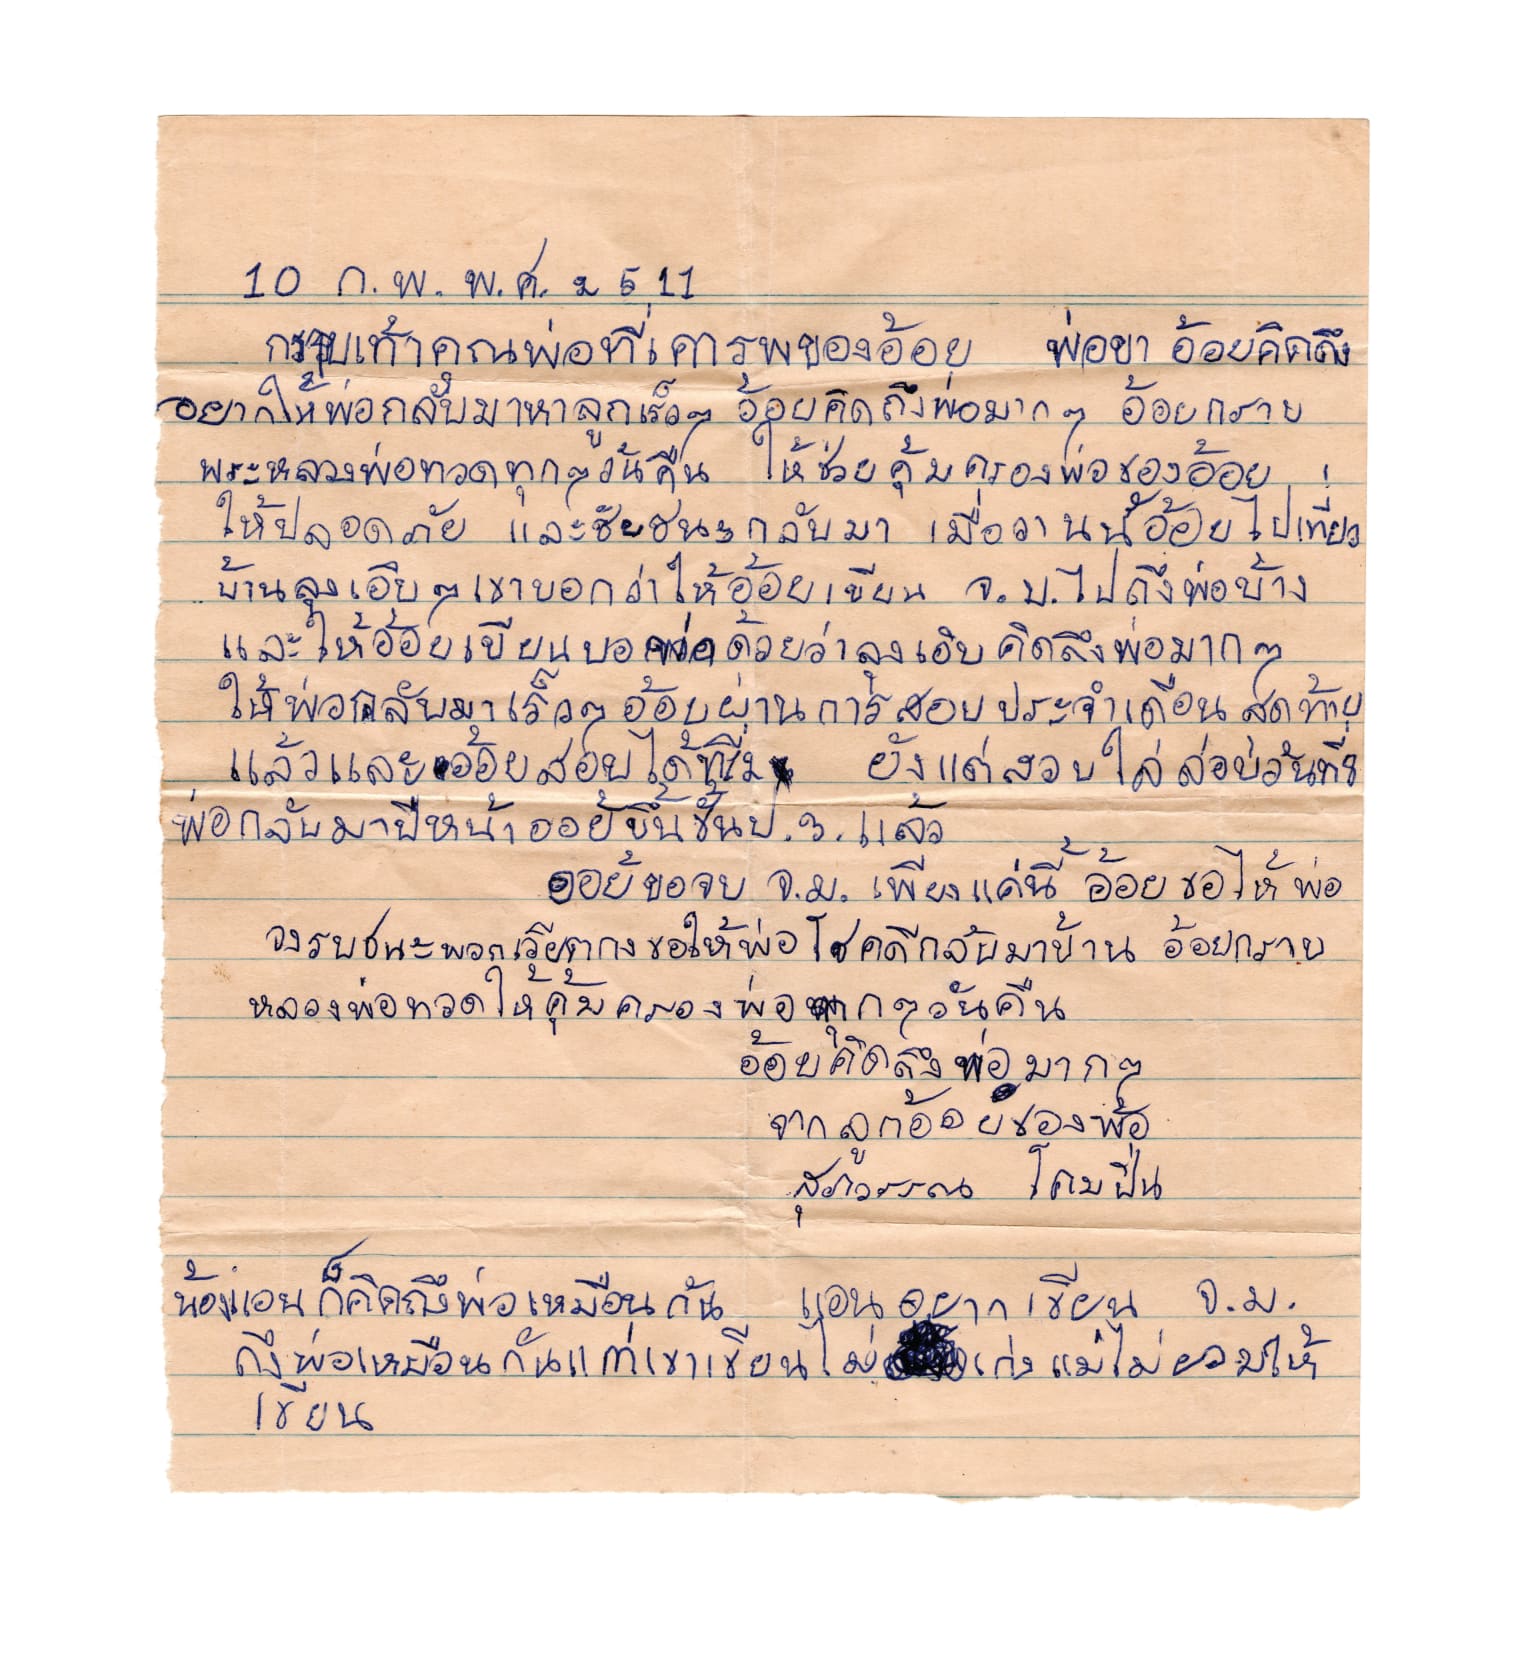 10 ก.พ. พ.ศ. 2511
กราบเท้าคุณพ่อที่เคารพของอ้อย พ่อขา อ้อยคิดถึง
อยากให้พ่อกลับมาหาลูกเร็วๆ อ้อยคิดถึงพ่อมากๆ อ้อยกราบ
พระหลวงพ่อทวดทุกๆวันคืน ให้ช่วยคุ้มครองพ่อของอ้อย
ให้ปลอดภัย และชัยชนะกลับมา เมื่อวานนี้อ้อยไปเที่ยว
บ้านลุงเอิบๆเขาบอกว่าให้อ้อยเขียน จ.ม.ไปถึงพ่อบ้าง
และให้อ้อยเขียนบอกพ่อด้วยว่าลุงเอิบคิดถึงพ่อมากๆ
ให้พ่อกลับมาเร็วๆอ้อยผ่านการสอบประจำเดือนสุดท้าย
แล้วและอ้อยสอบได้ที่ ยังแต่สอบไล่
พ่อกลับมาปีหน้าออย้ขึ้นชั้นป.3.แล้ว
ออย้ขอจบ จ.ม. เพียงแค่นี้ อ้อยขอให้พ่อ
จงรบชนะพวกเวียตกงขอให้พ่อโชคดีกลับมาบ้าน อ้อยกราบ
หลวงพ่อทวดให้คุ้มครองพ่อทุกๆวันคืน
อ้อยคิดถึงพ่อมากๆ
จากลูกอ้อยของพ่อ
สุภาวรรณ โคมปิ่น
น้องแอนก็คิดถึงพ่อเหมือนกัน แอนอยากเขียน จ.ม.
ถึงพ่อเหมือนกันแต่เขาเขียนไม่เก่งแม่ไม่ยอมให้
เขียน